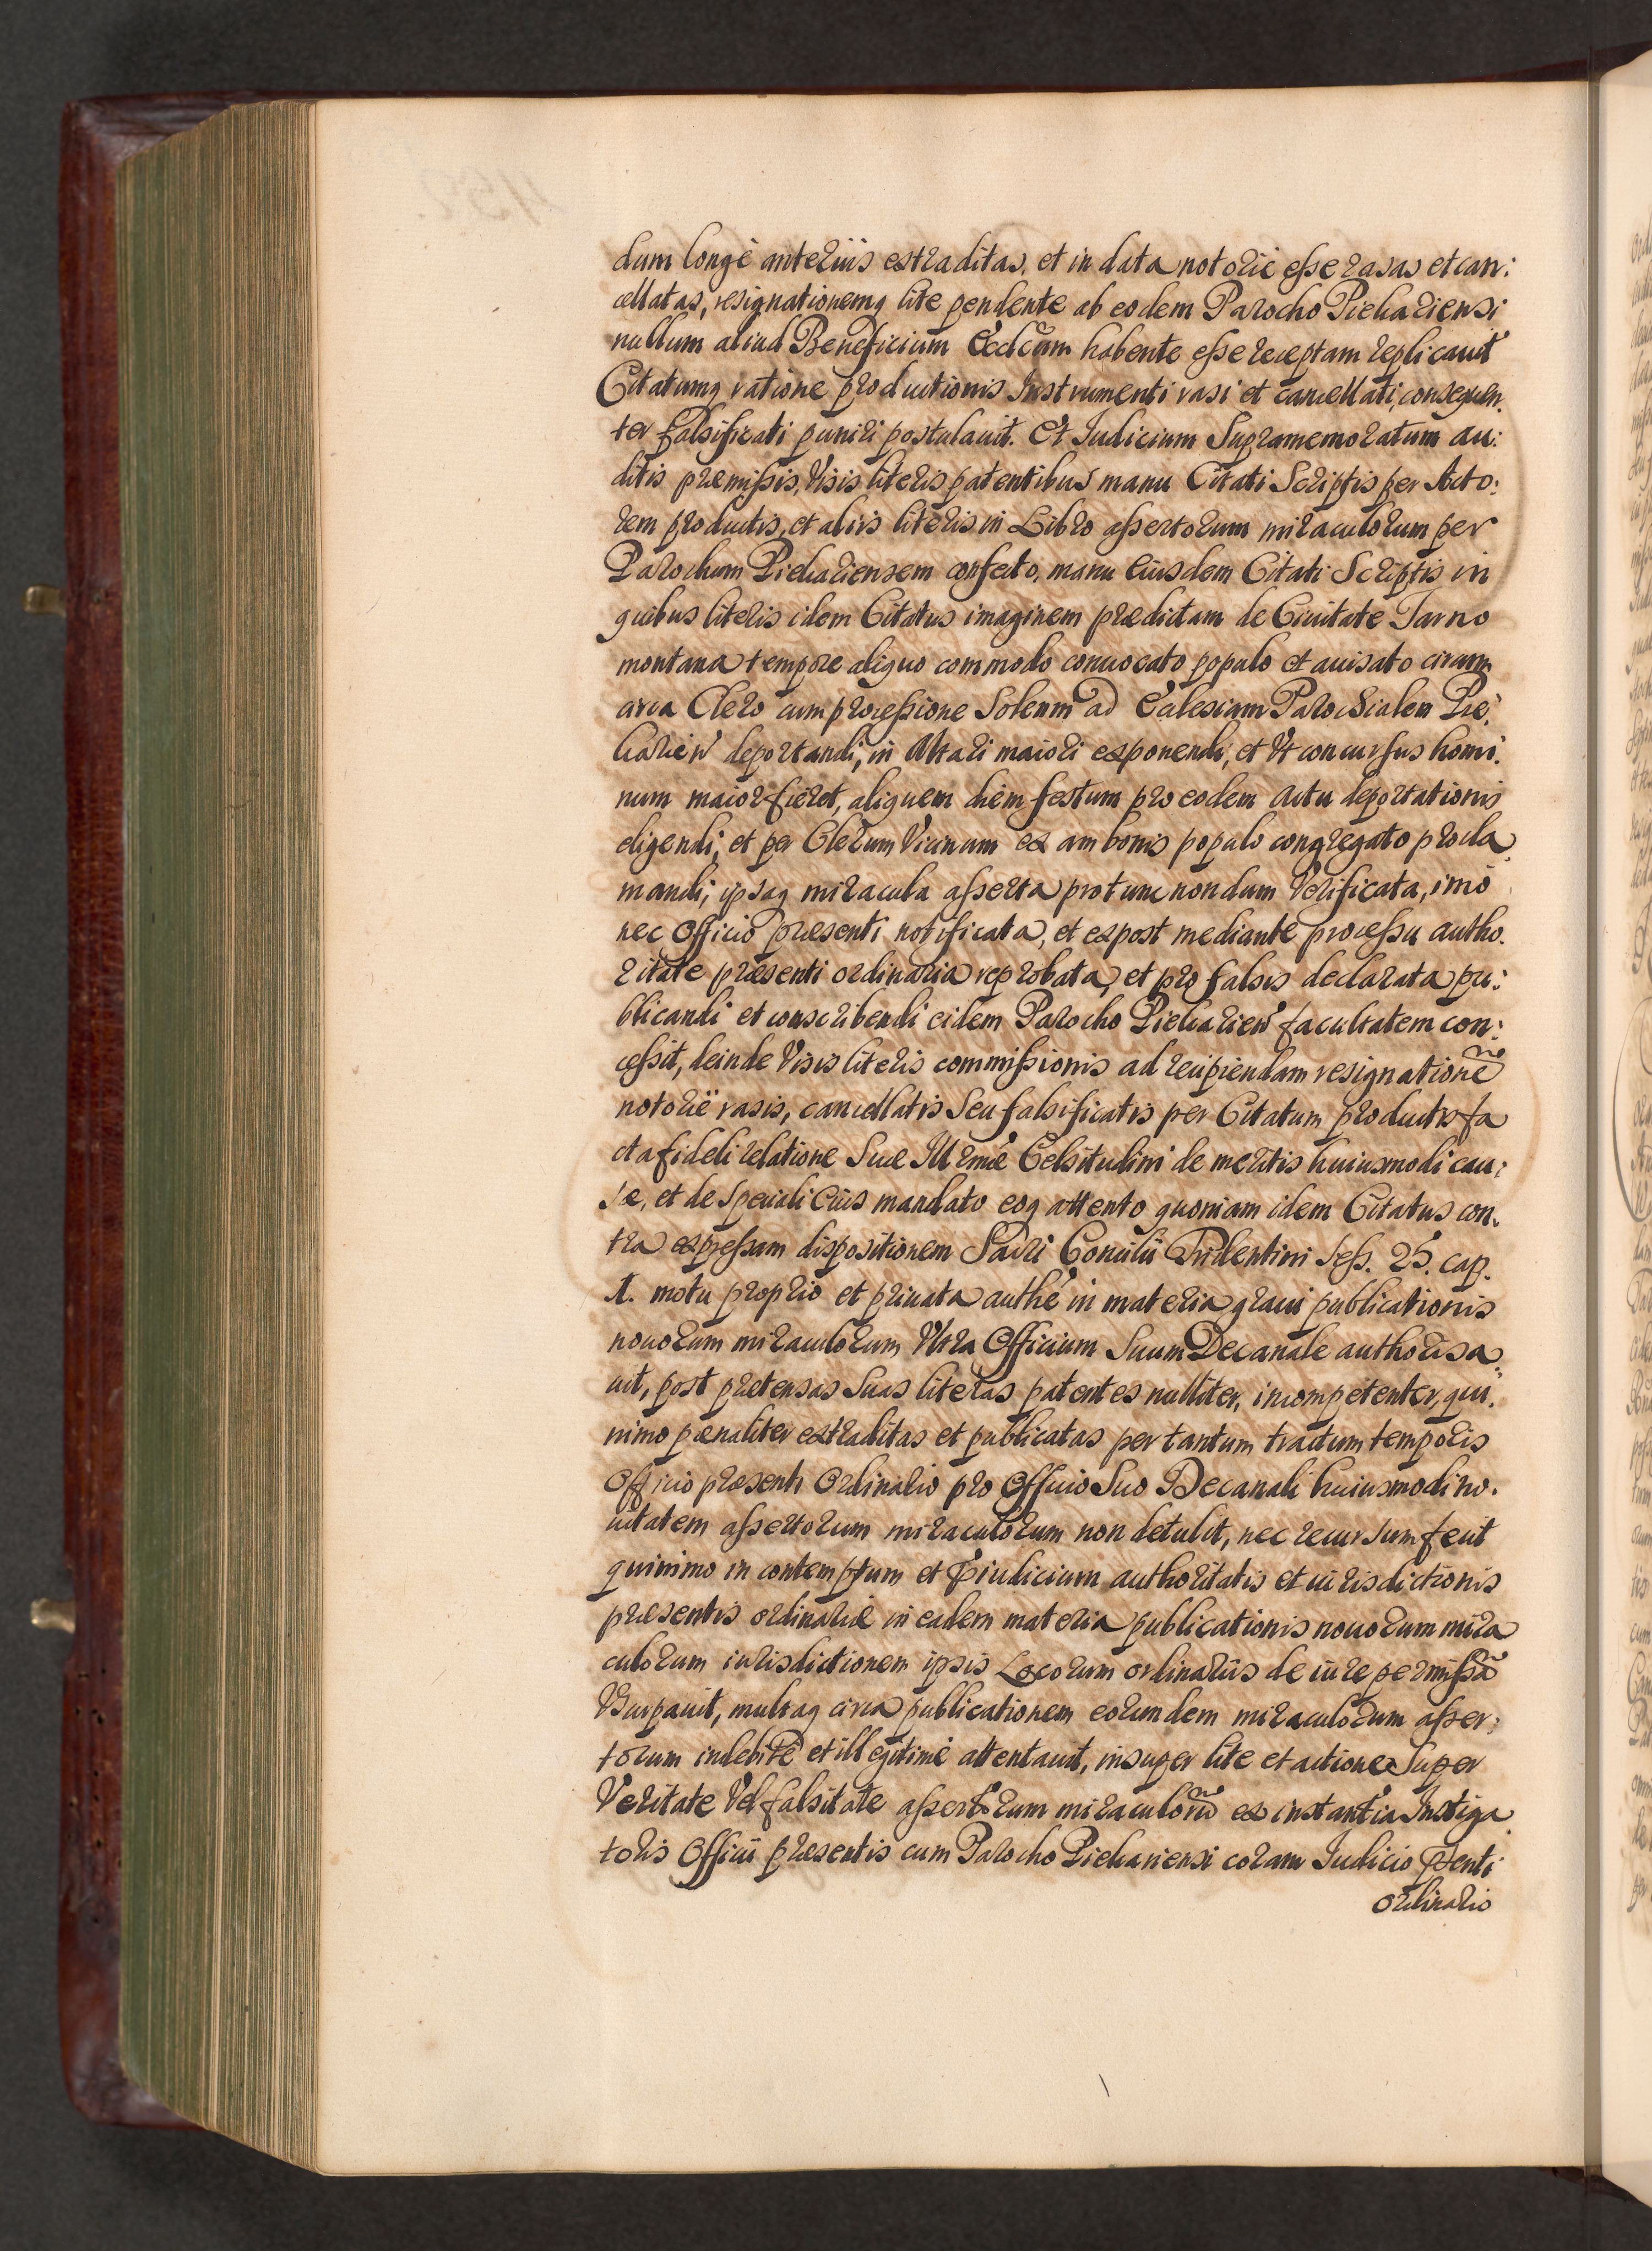 dum longè anteriùs extraditas, et in data notoriè esse rasas et can:
cellatas, resignationemq lite pendente ab eodem Parocho Piekariensi
nullum aliud Beneficium Eccl̃cum habente esse receptam replicauit
Citatumq ratione productionis Instrumenti rasi et cancellati, consequen.
ter falsificati puniri postulauit. Et Iudicium Supramemoratum au:
ditis præmissis, Visis literis patentibus manu Citati Scriptis per Acto:
rem productis, et aliis literis in Libro assertorum miraculorum per
Parochum Piekariensem confecto, manu Eiusdem Citati Scriptis in
quibus literis idem Citatus imaginem prædictam de Ciuitate Tarno
montana tempore aliquo commodo conuocato populo et auisato circum
circa Clero cum processione Solenni ad Ecclesiam Parochialem Pie:
karien̄ deportandi, in Altari maiori exponendi, et Vt concursus homi:
num maior fieret, aliquem diem festum pro eodem actu deportationis
eligendi; et per Clerum Vicinum ex ambonis populo congregato procla
mandi; ipsaq miracula asserta pro tunc nondum Verificata, imò
nec Officio præsenti notificata, et expost mediante processu autho.
ritate præsenti ordinaria reprobata, et pro falsis declarata pu:
blicandi et conscribendi eidem Parocho Piekarien̄ facultatem con:
cessit, deinde Visis literis commissionis ad recipiendam resignatione
notoriè rasis, cancellatis Seu falsificatis per Citatum productis fa
cta fideli relatione Suæ Illr̃mæ Celsitudini de meritis huiusmodi cau:
sæ, et de Speciali Eius mandato eoq attento quoniam idem Citatus con.
tra expressam dispositionem Sacri Concilii Tridentini Sess. 25. cap.
1. motu proprio et priuata authẽ in materia graui publicationis
nouorum miraculorum Vltra Officium Suum Decanale authorisa
uit, post prætensas Suas literas patentes nulliter, incompetenter, qui:
nimo pœnaliter extraditas et publicatas per tantum tractum temporis
Officio præsenti Ordinario pro Officio Suo Decanali huiusmodi no.
uitatem assertorum miraculorum non detulit, nec recursum fecit
quinimo in contemptum et Præiudicium authoritatis et iurisdictionis
præsentis ordinariæ in eadem materia publicationis nouorum mira
culorum iurisdictionem ipsis Locorum ordinariis de iure permissã
Vsurpauit, multaq circa publicationem eorundem miraculorum asser:
torum indebitè et illegitimè attentauit, insuper lite et actione Super
Veritate Vel falsitate assertorum miraculorũ ex instantia Instiga
toris Officii præsentis cum Parocho Piekariensi coram Iudicio p̃senti
ordinario